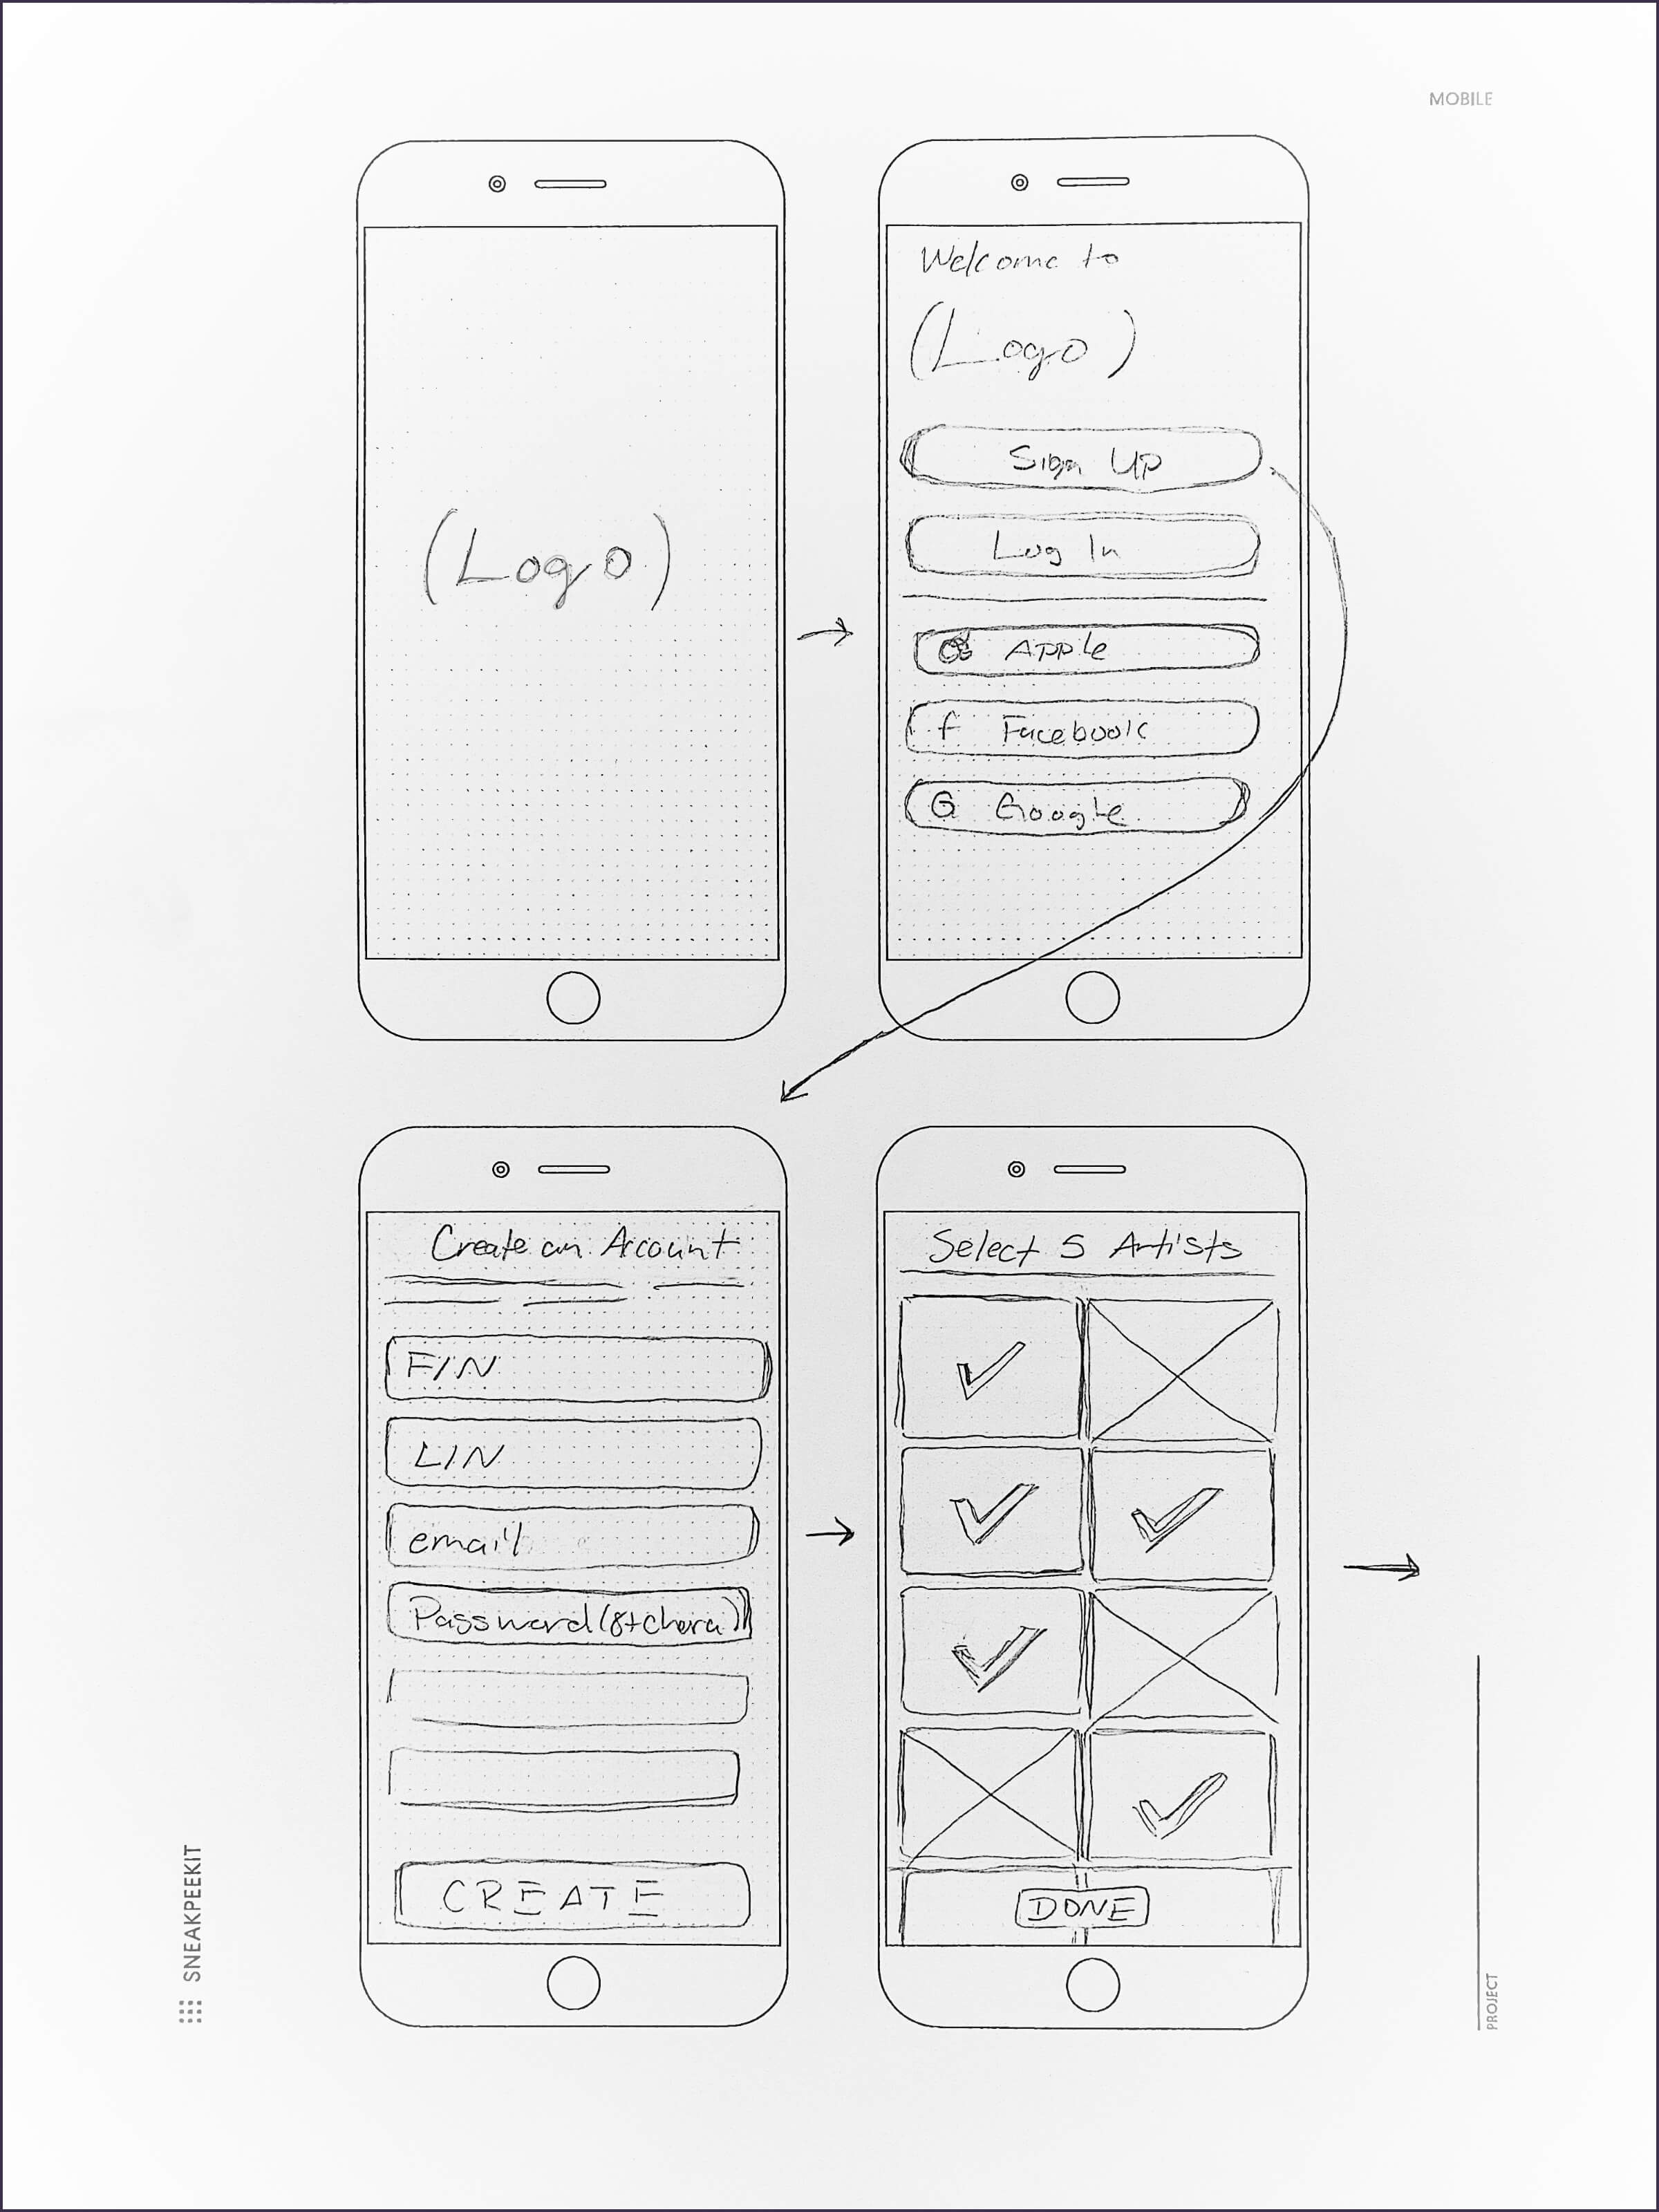 MOBILE
(Logo)
Welcome to
(Logo)
Sign Up
Log In
Apple
f Facebook
G Google
Create an Account
F/N
L/N
email
Password (8+ chara)
CREATE
Select 5 Artists
DONE
SNEAKPEEKIT
PROJECT